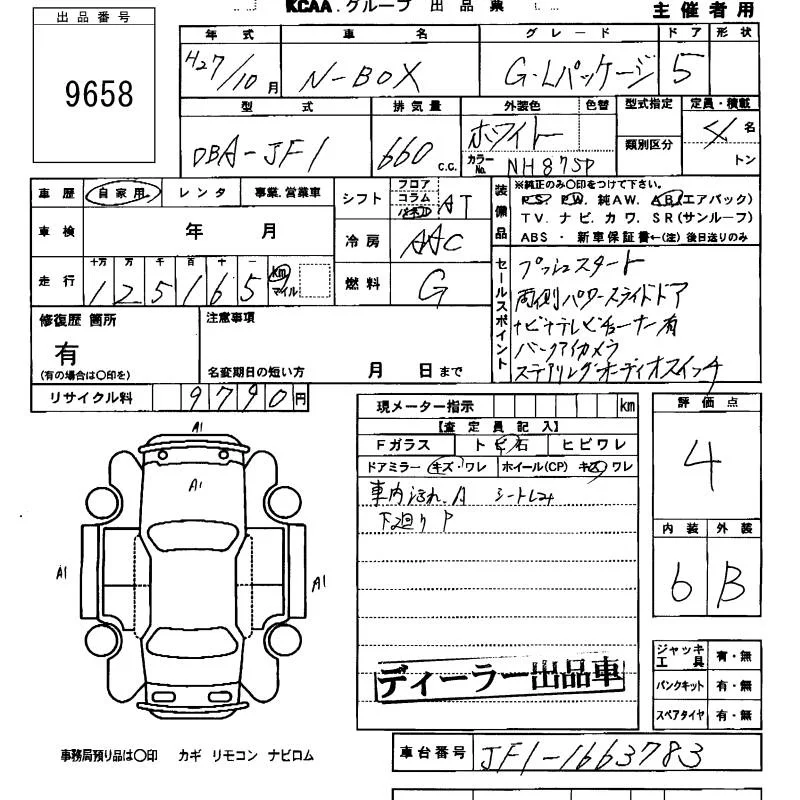 出品番号
9658
KCAA.グループ 出品票
主催者用
年式 車名 グレード ドア 形状
H27/10月 N-BOX G・Lパッケージ 5
型式 排気量 外装色 色替 型式指定 定員・積載
DBA-JF1 660 c.c. ホワイト 類別区分 4名
カラーNo. NH875P トン
車歴 自家用 レンタ 事業.営業車
シフト フロア コラム AT
車検 年 月
冷房 AAC
走行 十万 万 千 百 十 一
125165 km マイル
燃料 G
装備品
※純正のみ〇印をつけて下さい。
PS. PW. 純AW. AB(エアバック)
TV. ナビ. カワ. SR(サンルーフ)
ABS ・ 新車保証書←(注) 後日送りのみ
セールスポイント
プッシュスタート
両側パワースライドドア
ナビナテレビチューナー有
バックアイカメラ
ステアリングオーディオスイッチ
修復歴 箇所
有
(有の場合は〇印を)
注意事項
名変期日の短い方 月 日まで
リサイクル料 9790円
現メーター指示 km
【査定員記入】
Fガラス トビ石 ヒビワレ
ドアミラー キズ・ワレ ホイール(CP) キズ ワレ
車内汚れ.A
下廻り P
評価点
4
内装 外装
6 B
A1
A1
A1
A1
ジャッキ工具 有・無
パンクキット 有・無
スペアタイヤ 有・無
ディーラー出品車
事務局預り品は〇印 カギ リモコン ナビロム
車台番号 JF1-1663783